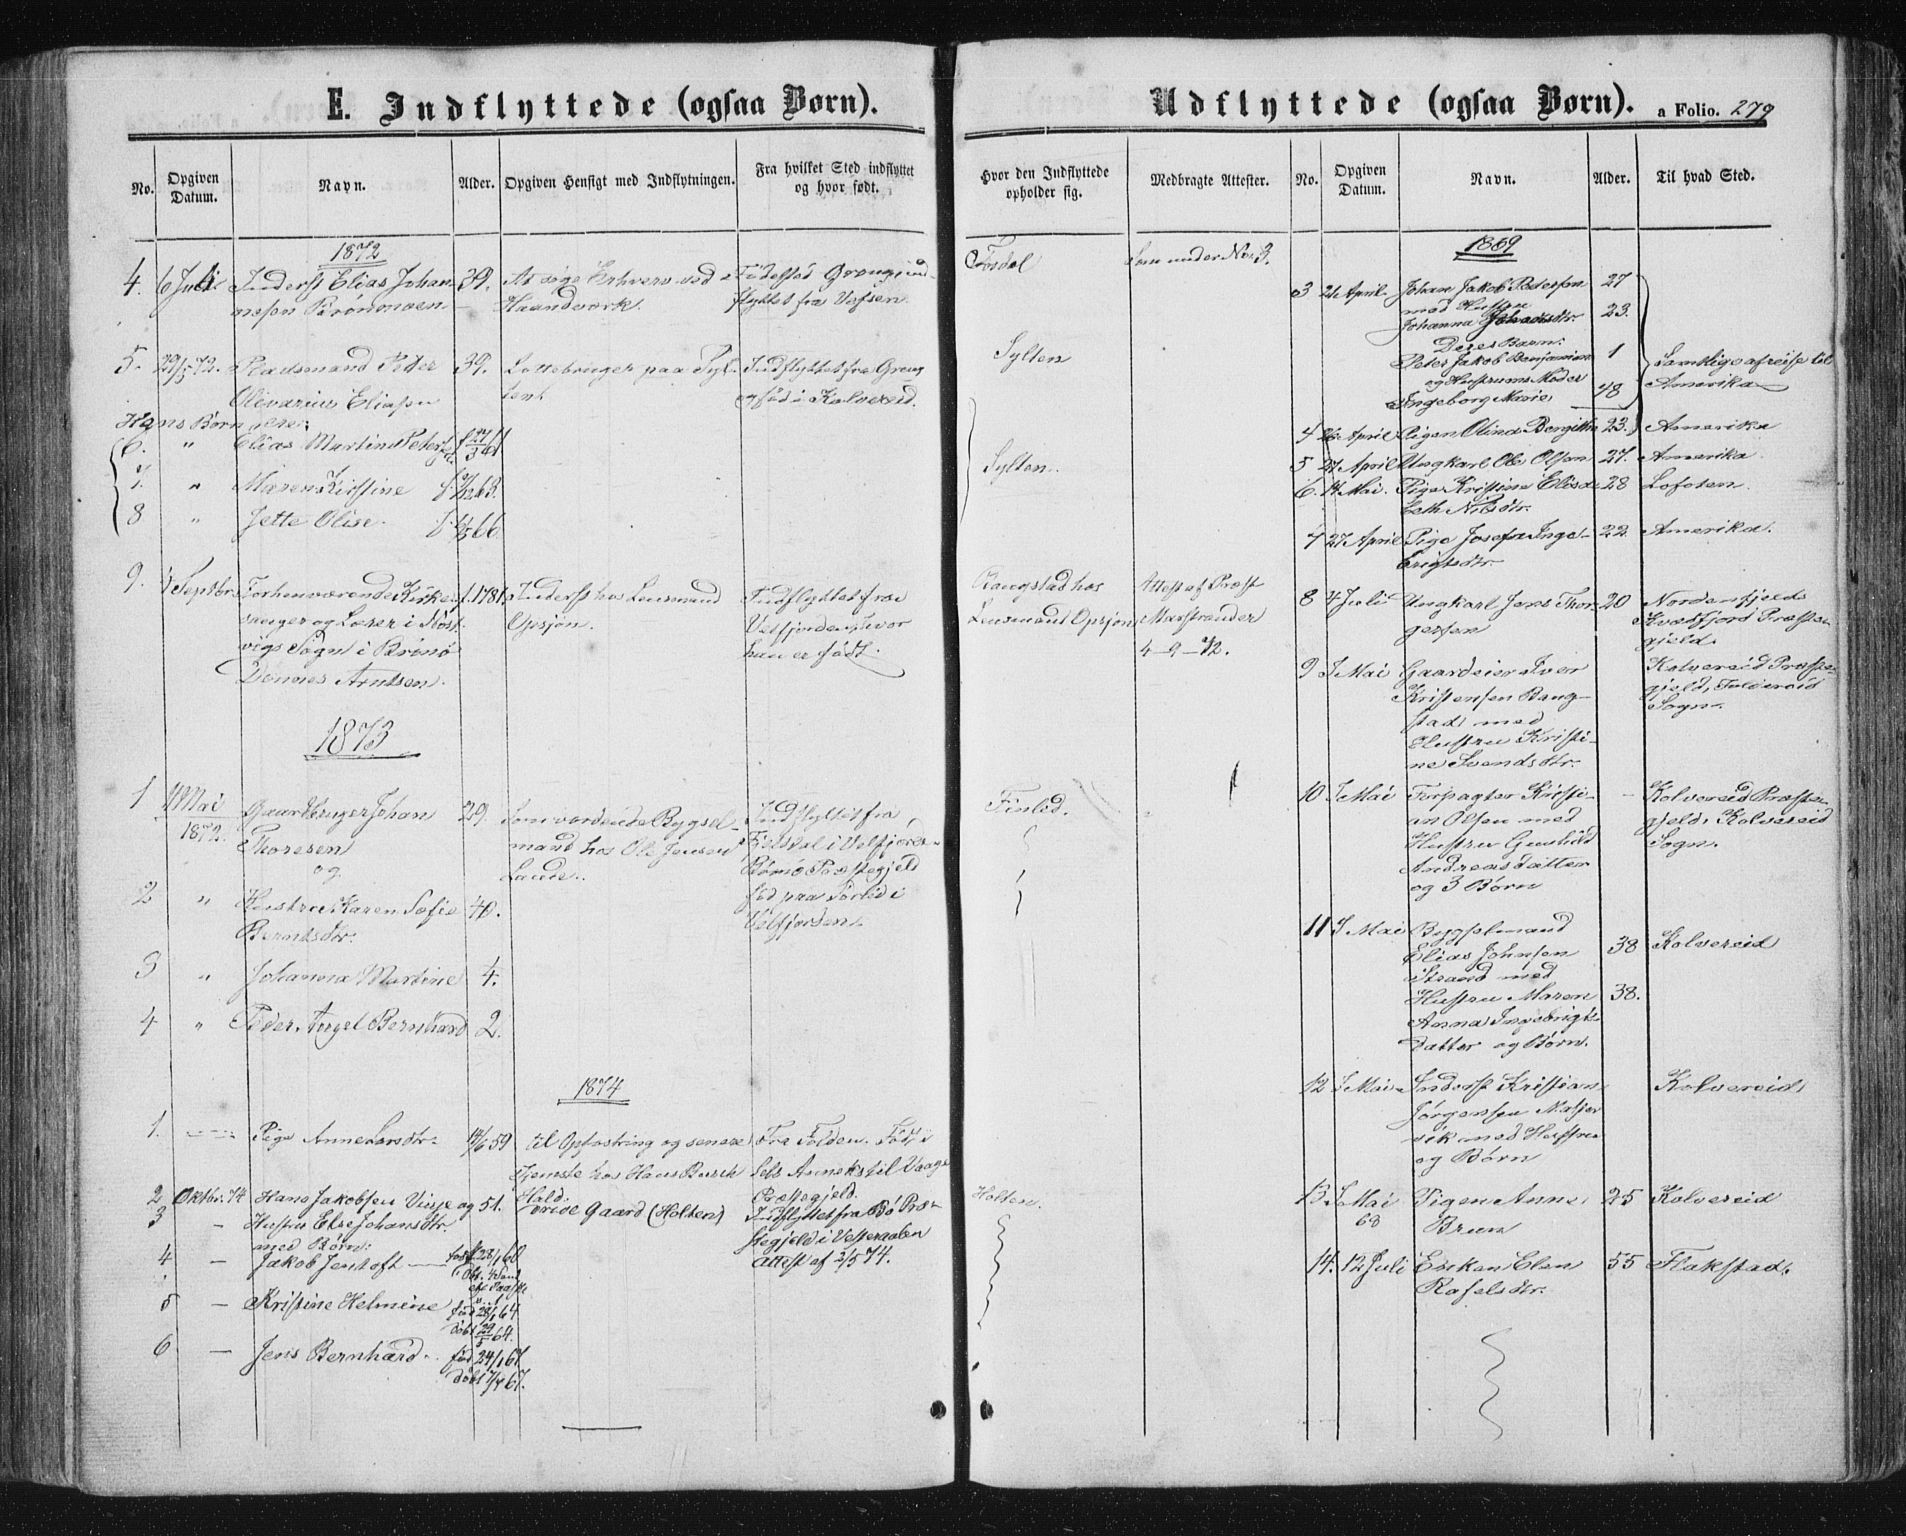 E. Indflyttede (ogsaa Børn).
No.
Opgiven Datum.
Navn.
Alder.
Opgiven Hensigt med Indflytningen.
Fra hvilket Sted indflyttet og hvor født.
1872
4. 6 Juli Inderst Elias Johan- 39. At søge Erhverv ved Fødested Grong, ind-
nesen Brønmoen Haandverk. flyttet fra Vefsen.
5. 29/5 72. Pladsmand Peder 39. paa Syl- Indflyttet fra Grong
Olivarius Eliasen ten. og født i Kolvereid.
Hans Børn ere:
6. " Elias Martin Peters.
7. " Maren Kirstine f. 63.
8 " Jette Olise. f. 66.
9. Septbr. Forhenværende Kirke- f. 1781. Inderst hos Lensmand Indflyttet fra
sanger og Lærer i Opsjøn. Velfjorden, hvor
vigs Sogn i Brønø han er født.
Arntsen.
1873
1 Mai Gaardbruger Johan 29. Som vordende Bygsel- Indflyttet fra
1872. Thoresen mand hos Ole Jensen i Velfjorden
og Lande. Brønø Præstegjeld
2 " Hustru Karen Sofie 40. fød paa Sørlid i
Berntsdtr. Velfjorden.
3 " Johanna Martine 4.
4 " Peder Angel Bernhard 2.
1874
1. Pige Anne Larsdtr. 59 til Opfostring og senere Fra Folden. Fød i
tjeneste hos Hans Anneks til
2 Oktbr. 74 Hans Jakobsen Vinje og 51. Hald. Præstegjeld.
3 – Hustru Else Johansdtr. Gaard (Holten) Indflyttet fra Bø Præ-
med Børn: stegjeld i Vesteraalen
4 – Jakob Jentoft født 28/1 60 Attest af 2/5 74.
5 – Kristine Helmine fød 28/1 64
døbt 29/5 64.
6 – Jens Bernhard. fød 24/1 67
døbt 7/4 67.
Udflyttede (ogsaa Børn). a Folio. 279
Hvor den Indflyttede opholder sig.
Medbragte Attester.
No.
Opgiven Datum.
Navn.
Alder.
Til hvad Sted.
Fosdal Som under No 3.
Sylten
Sylten.
Raugstad hos Attest af Præst
Lensmand Opsjøn Marstrander
4-9-72.
Finlid.
Holten.
1869
3 21 April Johan Jakob Pedersen 27
med Hustru
Johanna 23.
Deres Barn:
Peter Jakob Benjamin 1 Samtlige afreise til
og Hustruens Moder Amerika
Ingeborg Marie 48
4 26 April Pigen Olina Bergitte 23. Amerika
5 27 April Ungkarl Ole Olsen 27. Amerika.
6. 14 Mai. Pige Kristine Elisa- 28 Lofoten.
beth Nilsdtr.
7 27 April Pige Josefa Inge- 22. Amerika.
brigtsdtr.
8 4 Juli Ungkarl Jens Thor- 20 Nordenfjelds
gersen Kvædfjord Præste-
gjeld.
9 Mai Gaardeier Iver Kolvereid Præste-
Kristensen Raug- gjeld, Foldereid
stad med Sogn.
Hustru Kristi-
ne Svendsdtr.
10 Mai Forpagter Kristi- – Kolvereid Præste-
an Olsen med gjeld, Kolvereid
Hustru Gunhild Sogn.
Andreasdatter
og 3 Børn
11 Mai Bygselmand
Elias Johnsen 38 Kolvereid
Strand med
Hustru Maren 38.
Anna Ingebrigts-
datter og Børn.
12 Mai Inderst Kristian Kolvereid
Jørgensen
vik med Hustru
og Børn
13 Mai Pigen Anne 25 Kolvereid
68 Brun
14. 12 Juli Enken Elen 55 Flakstad.
Rafelsdtr.